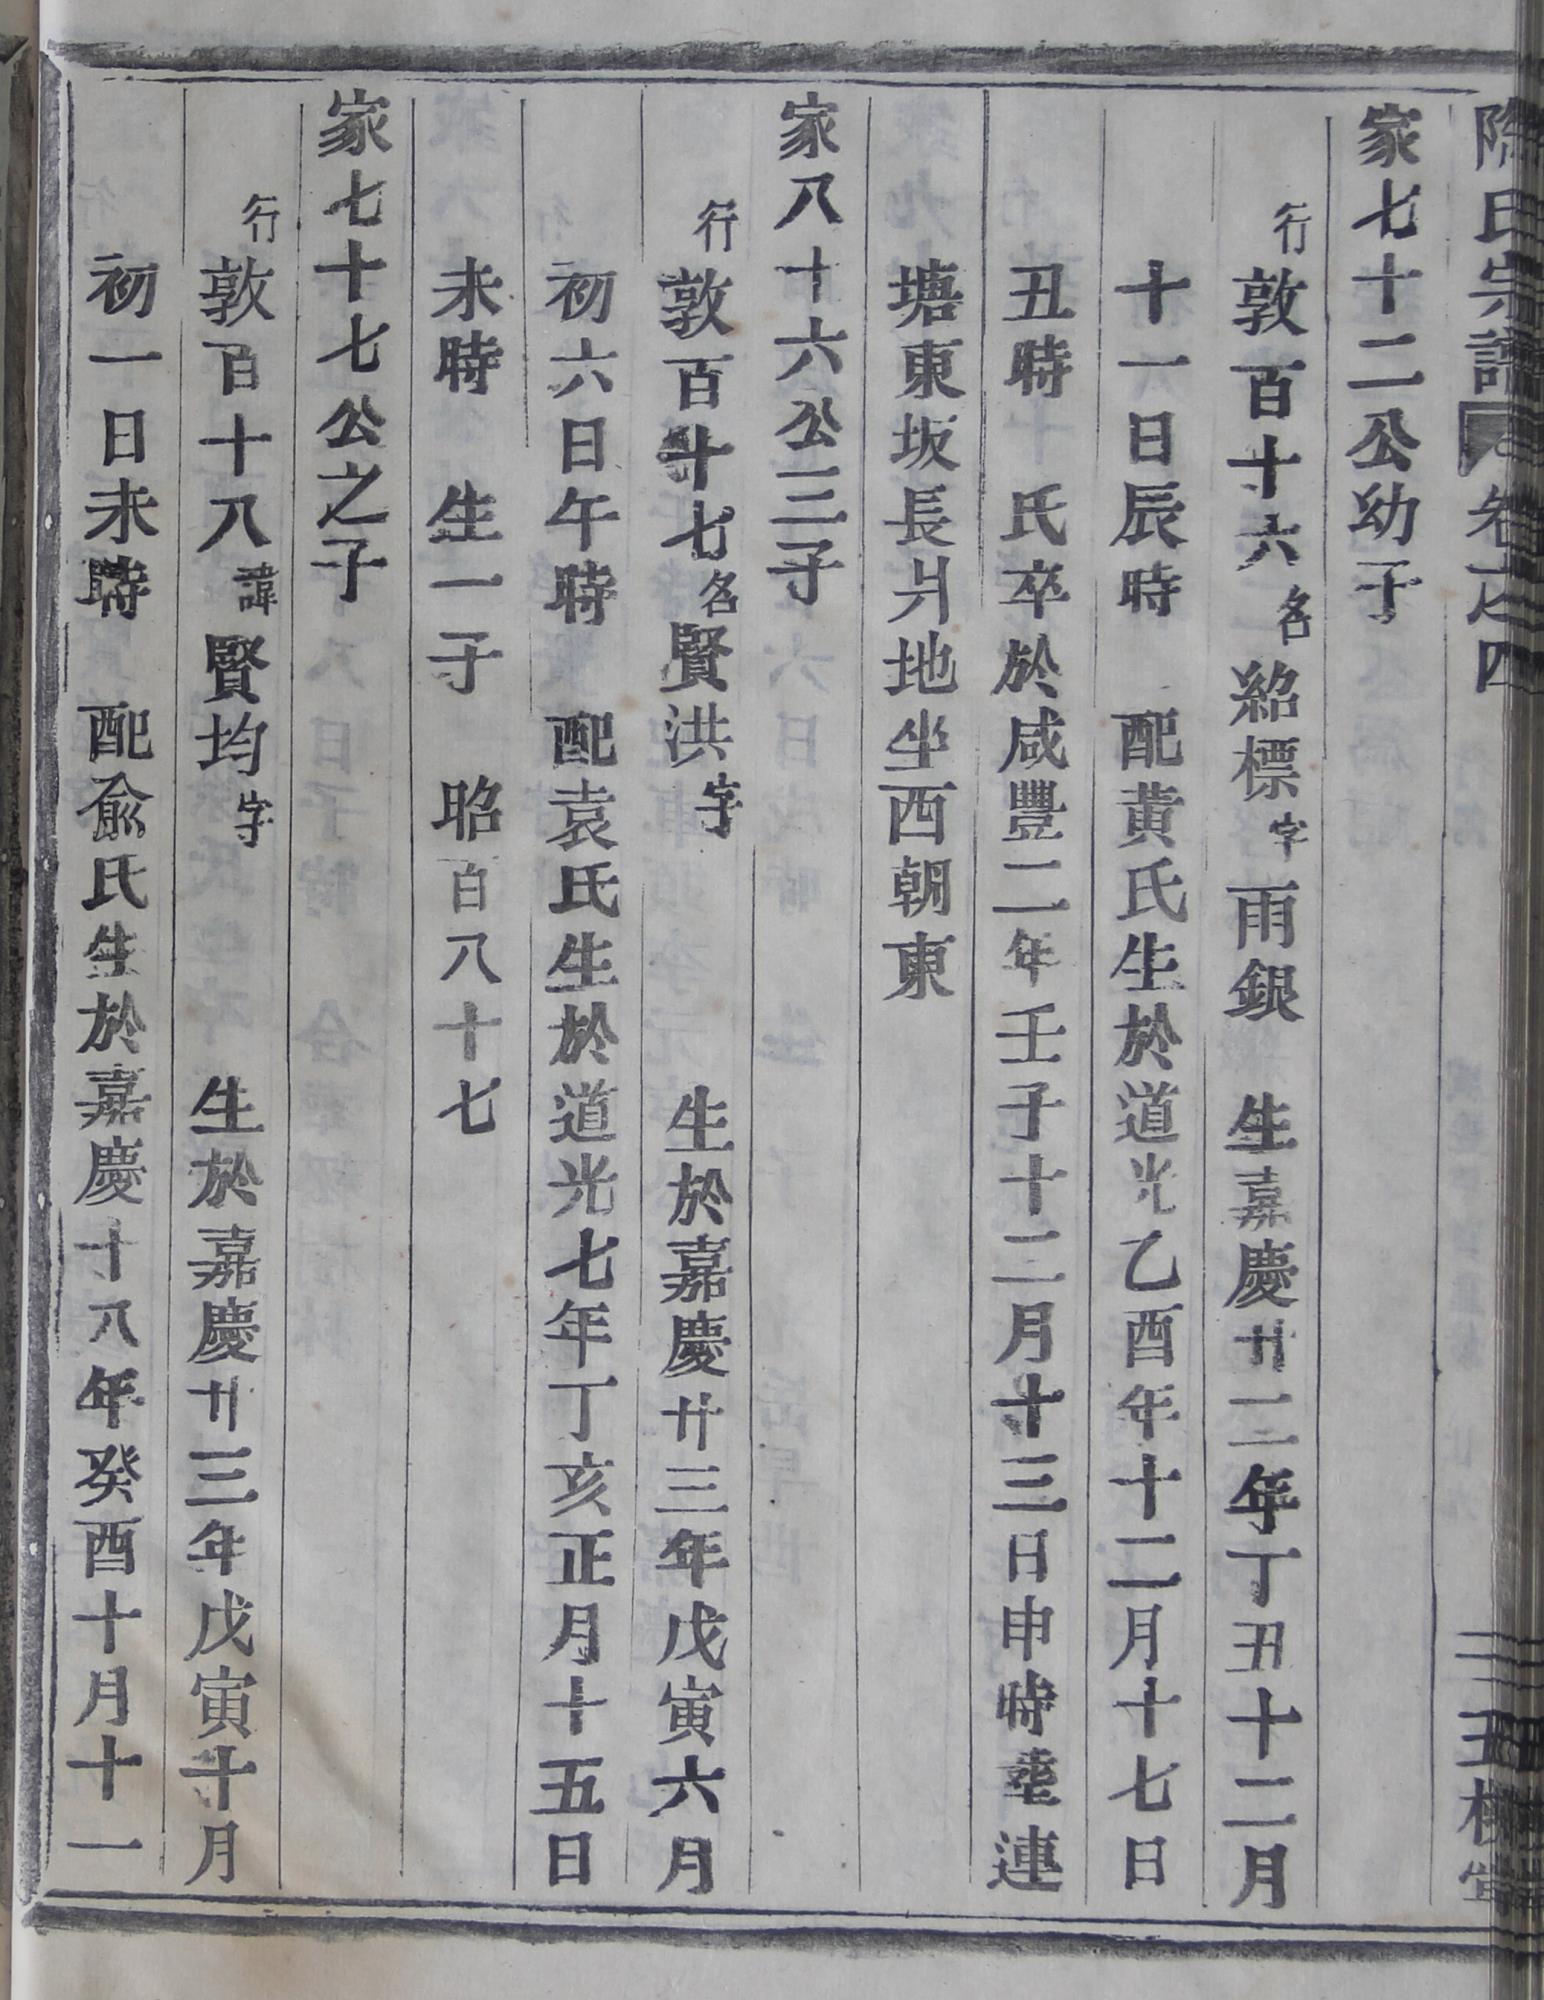 陶氏宗譜 卷之四 五柳堂
家七十二公幼子
行敦百十六名紹標字雨銀 生嘉慶廿二年丁丑十二月
十一日辰時 配黃氏生於道光乙酉年十二月十七日
丑時 氏卒於咸豐二年壬子十二月十三日申時塟連
塘東坂長爿地坐西朝東
家八十六公三子
行敦百十七名賢洪字 生於嘉慶廿三年戊寅六月
初六日午時 配袁氏生於道光七年丁亥正月十五日
未時 生一子 昭百八十七
家七十七公之子
行敦百十八諱賢均字 生於嘉慶廿三年戊寅十月
初一日未時 配俞氏生於嘉慶十八年癸酉十月十一